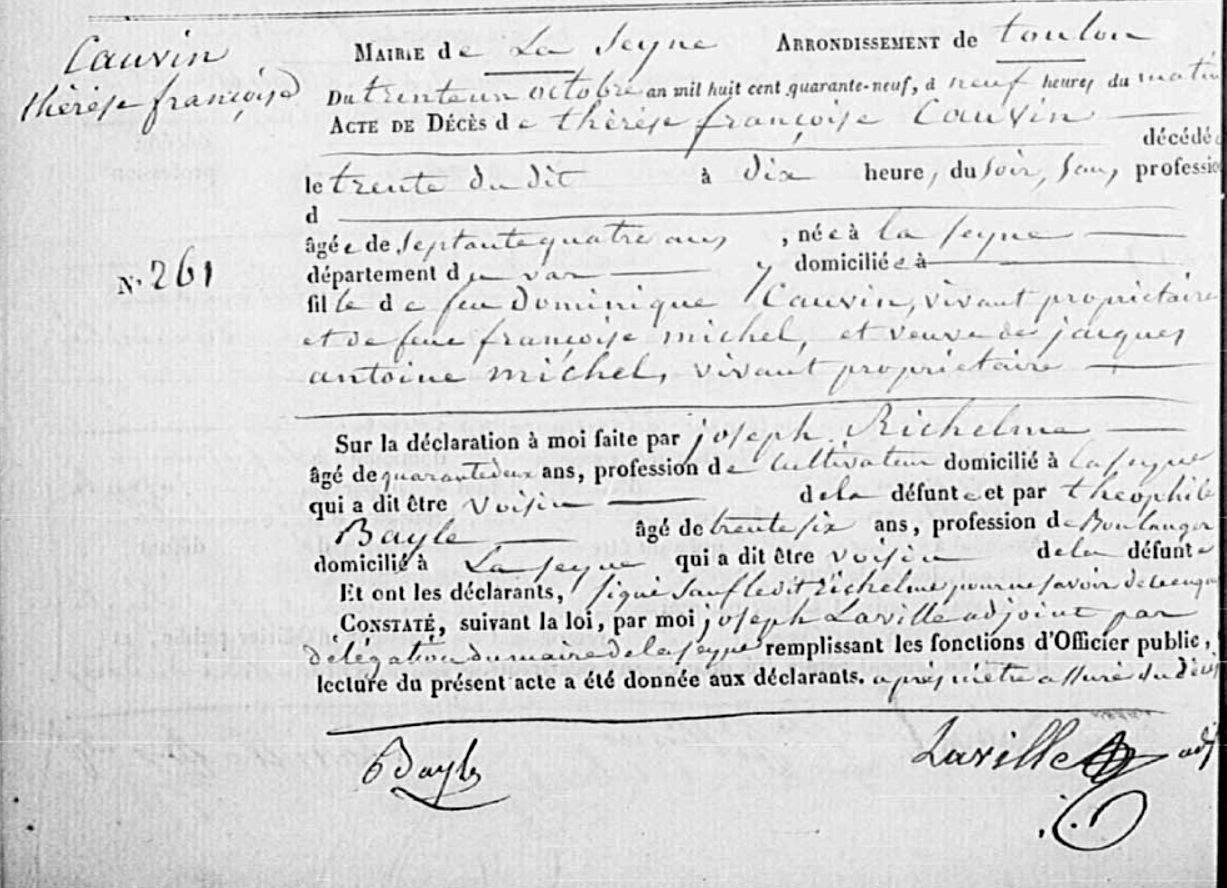 Cauvin
thérèse françoise
MAIRIE de La Seyne ARRONDISSEMENT de toulon
Du trente un octobre an mil huit cent quarante-neuf, à neuf heures du matin
ACTE DE DÉCÈS de thérèse françoise Cauvin
décédée
le trente du dit à dix heure, du soir, sans profession
d
âgée de septante quatre ans, née à la seyne
N.º 261
département du var y domiciliée à
fille de feu dominique Cauvin, vivant proprietaire
et de feue françoise michel, et veuve de jacques
antoine michel, vivant proprietaire
Sur la déclaration à moi faite par joseph Richelme
âgé de quarante deux ans, profession de Cultivateur domicilié à la seyne
qui a dit être voisin de la défunte et par théophile
Bayle âgé de trente six ans, profession de Boulanger
domicilié à La seyne qui a dit être voisin de la défunte
Et ont les déclarants, signé sauf ledit Richelme pour ne savoir de ce enquis
CONSTATÉ, suivant la loi, par moi joseph Laville adjoint par
délégation du maire de la seyne remplissant les fonctions d'Officier public,
lecture du présent acte a été donnée aux déclarants. après m'etre assuré du décès
Bayle
Laville adj